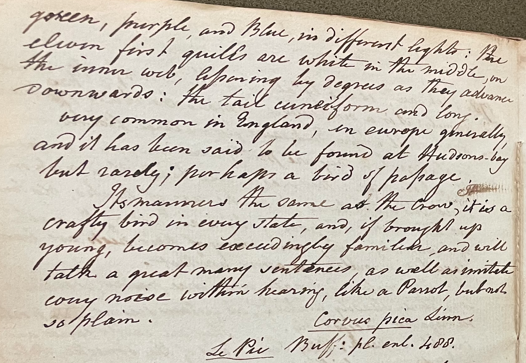 green, purple, and Blue, in different lights: the
eleven first quills are white in the middle, on
the inner web, lessening by degrees as they advance
downwards: the tail cuneiform and long.
very common in England, in europe generally,
and it has been said to be found at Hudsons-bay
but rarely; perhaps a bird of passage.
Its manners the same as the Crow, it is a
crafty bird in every state, and, if brought up
young, becomes exceedingly familiar, and will
talk a great many sentences, as well as imitate
every noise within hearing, like a Parrot, but not
so plain.
Corvus pica Linn.
Le Pie Buff: pl. enl. 488.